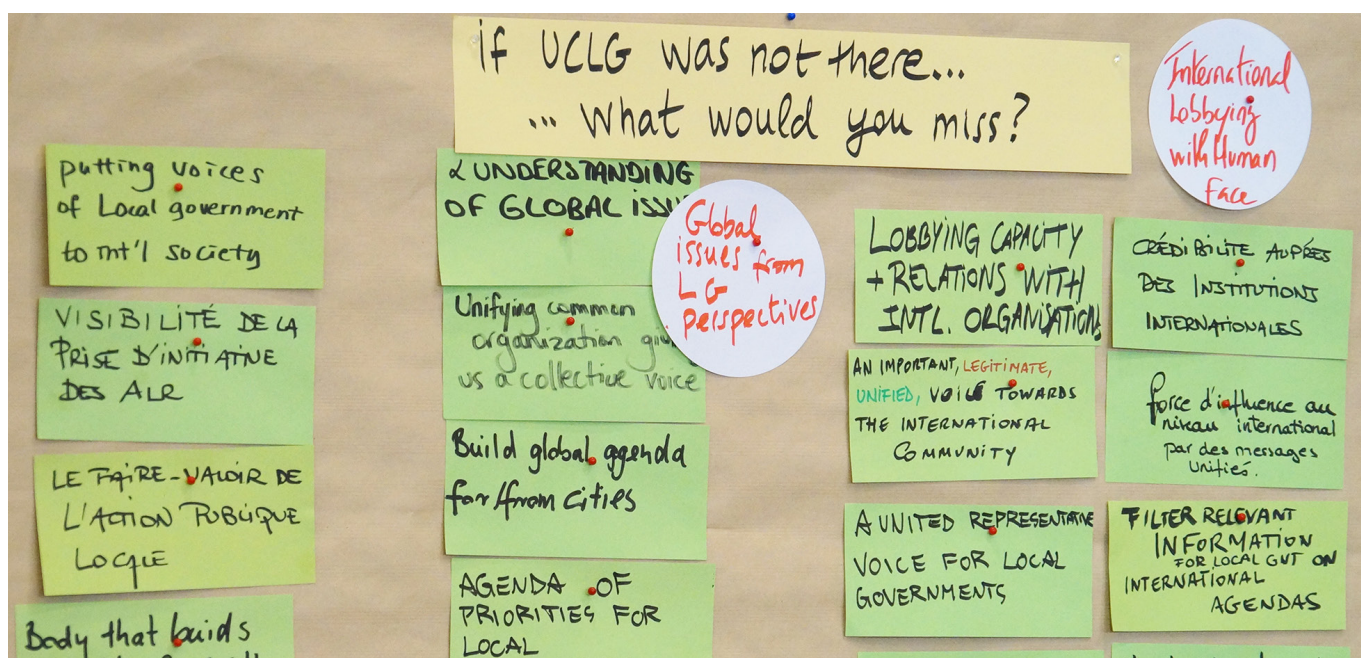 if UCLG was not there...
... What would you miss?
International
Lobbying
with Human
Face
putting voices
of Local government
to int'l society
VISIBILITÉ DE LA
PRISE D'INITIATIVE
DES ALR
LE FAIRE-VALOIR DE
L'ACTION PUBLIQUE
LOCALE
Body that buids
& UNDERSTANDING
OF GLOBAL
Global
issues from
LG
perspectives
Unifying common
organization
us a collective voice
Build global agenda
for/from cities
AGENDA OF
PRIORITIES FOR
LOCAL
LOBBYING CAPACITY
+ RELATIONS WITH
INTL. ORGANISATIONS
AN IMPORTANT, LEGITIMATE,
UNIFIED, VOICE TOWARDS
THE INTERNATIONAL
COMMUNITY
A UNITED REPRESENTATIVE
VOICE FOR LOCAL
GOVERNMENTS
CRÉDIBILITE AUPRÈS
DES INSTITUTIONS
INTERNATIONALES
force d'influence au
niveau international
par des messages
unifiés.
FILTER RELEVANT
INFORMATION
FOR LOCAL GVT ON
INTERNATIONAL
AGENDAS